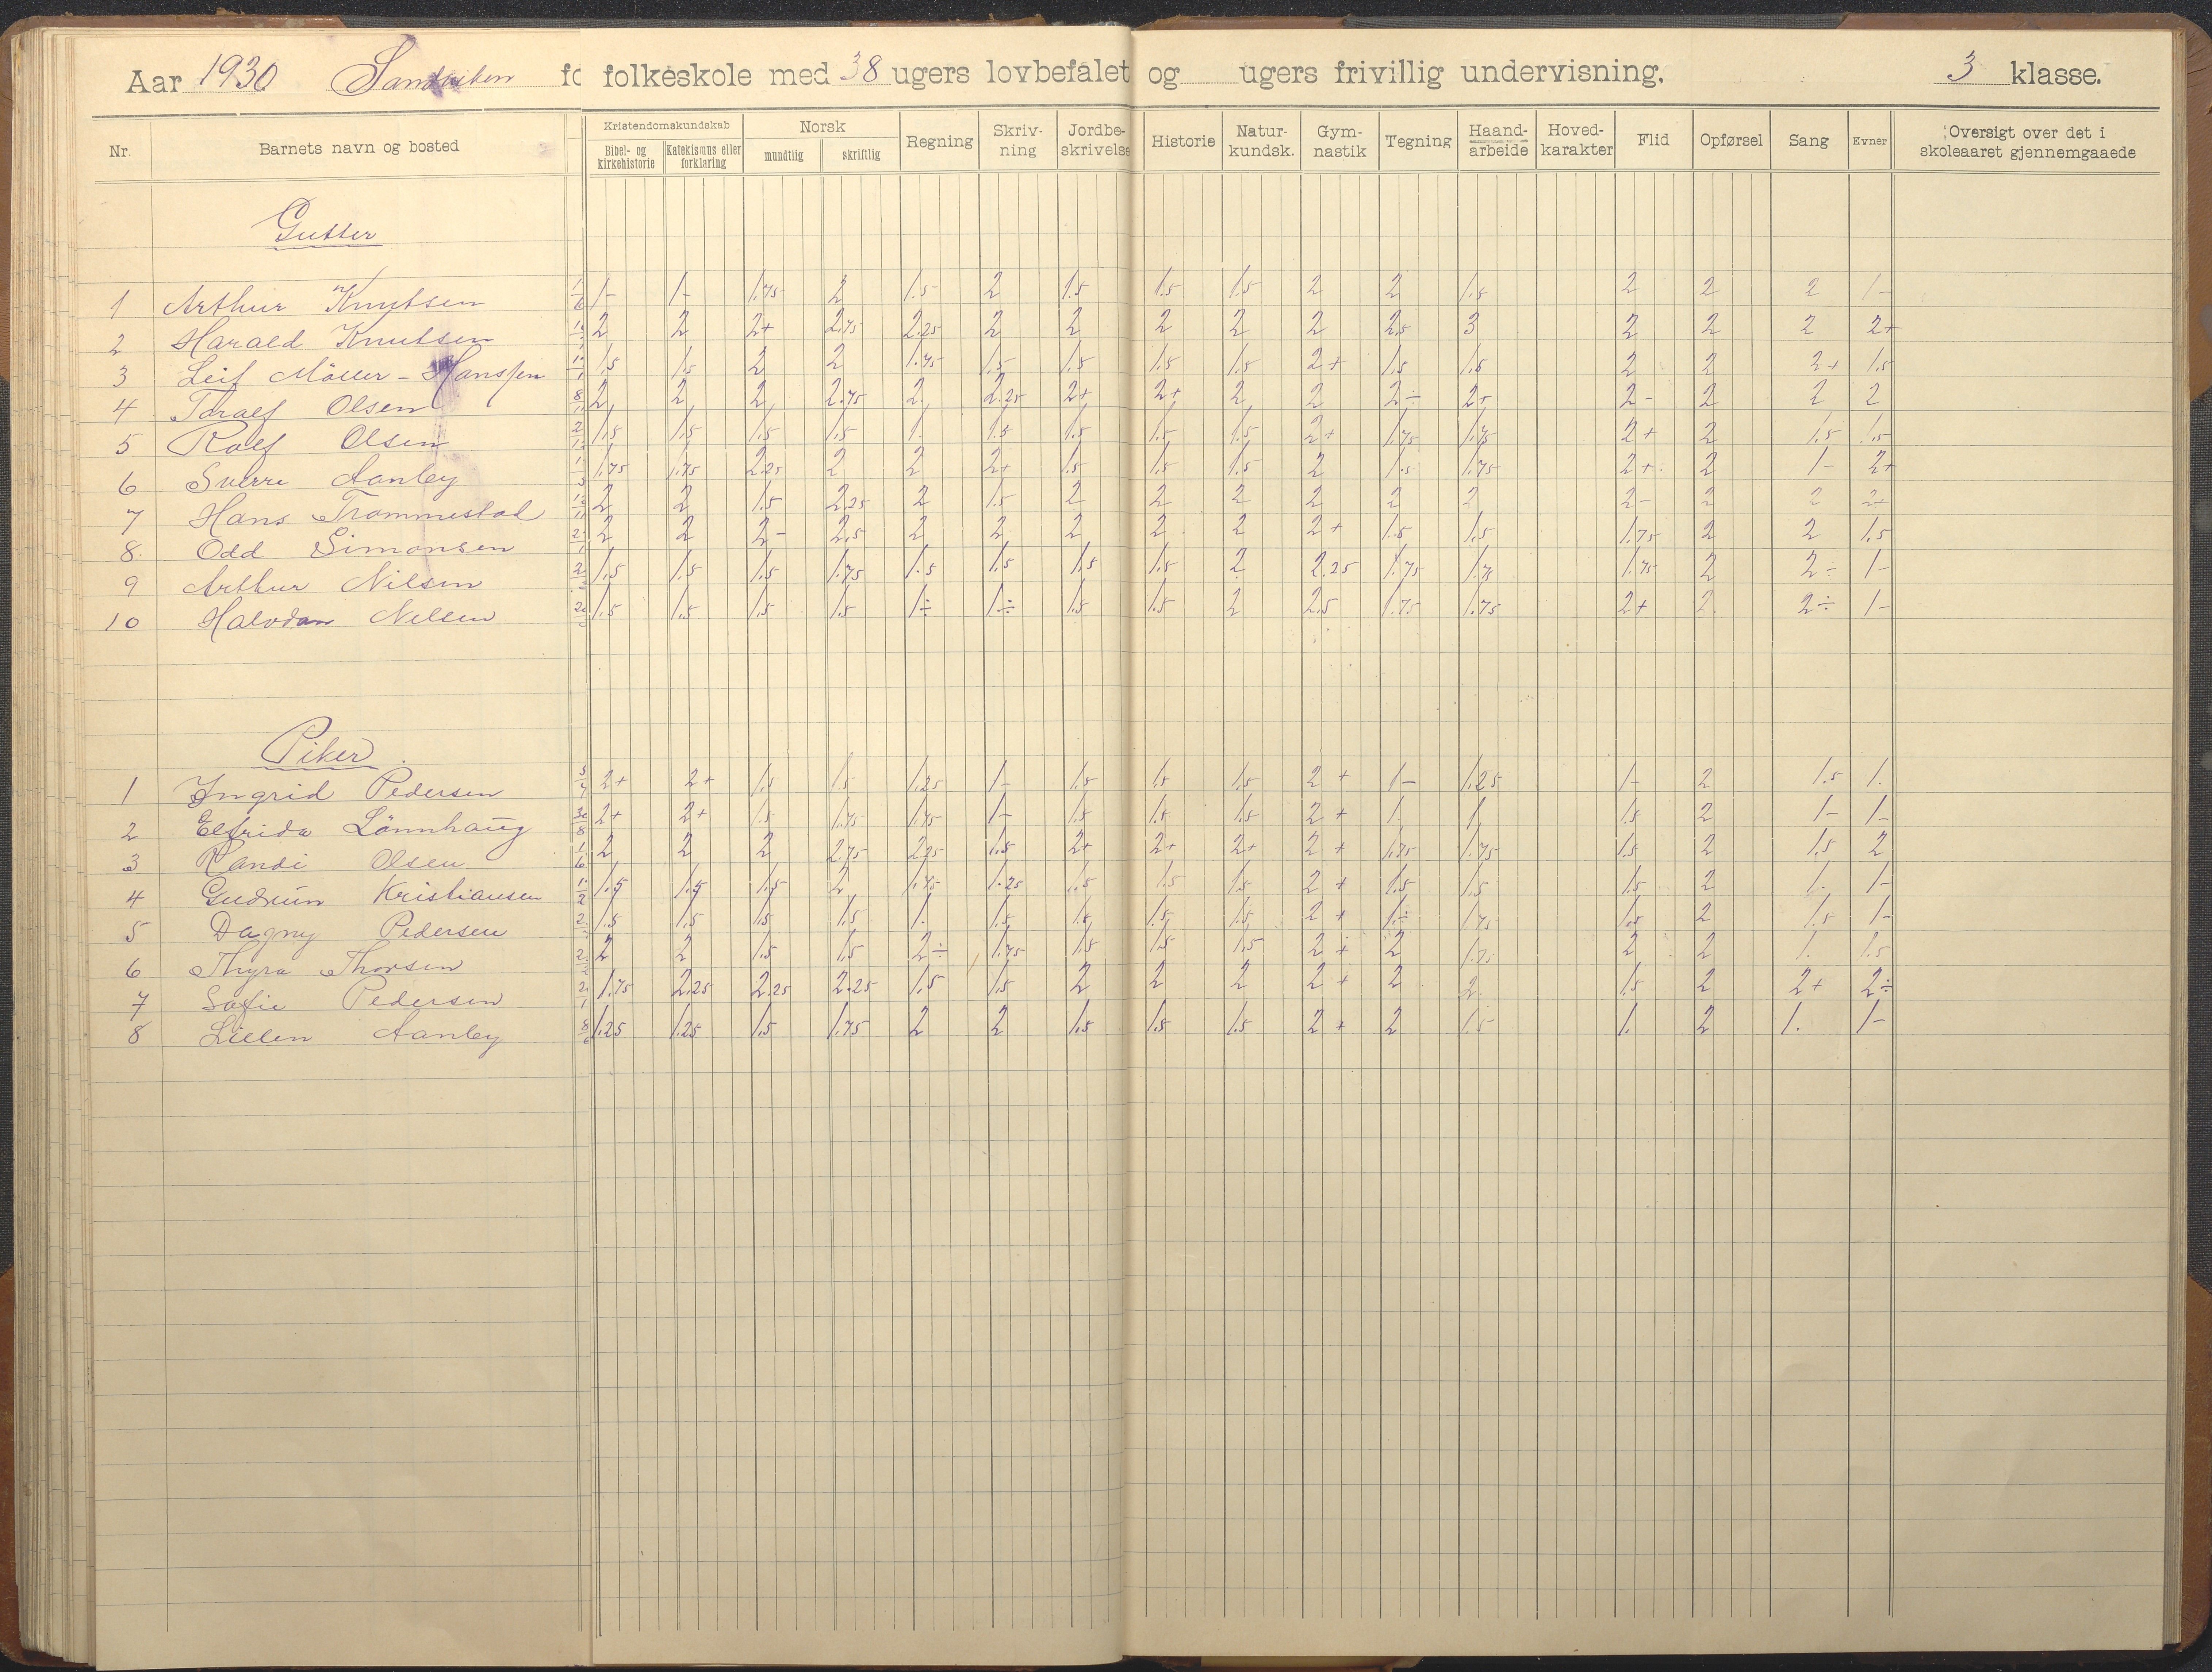 Aar 1930 fo folkeskole med 38 ugers lovbefalet og ugers frivillig undervisning. 3 klasse.
Nr. Barnets navn og bosted Kristendomskundskab Bibel- og kirkehistorie Katekismus eller forklaring Norsk mundtlig skriftlig Regning Skriv-ning Jordbe-skrivelse Historie Natur-kundsk. Gym-nastik Tegning Haand-arbeide Hoved-karakter Flid Opførsel Sang Evner Oversigt over det i skoleaaret gjennemgaaede
Gutter
1 Arthur Knutsen 1- 1- 1.75 2 1.5 2 1.5 1.5 1.5 2 2 1.5 2 2 2 1-
2 Harald Knutsen 2 2 2+ 2.75 2.25 2 2 2 2 2 2.5 3 2 2 2 2+
3 Leif Möller-Hanssen 1.5 1.5 2 2 1.75 1.5 1.5 1.5 1.5 2+ 1.5 1.5 2 2 2+ 1.5
4 Toralf Olsen 2 2 2 2.75 2. 2.25 2+ 2+ 2 2 2÷ 2+ 2- 2 2 2
5 Rolf Olsen 1.5 1.5 1.5 1.5 1. 1.5 1.5 1.5 1.5 2+ 1.75 1.75 2+ 2 1.5 1.5
6 Sverre Aanby 1.75 1.75 2.25 2 2 2+ 1.5 1.5 1.5 2 1.5 1.75 2+ 2 1- 2+
7 Hans Trommestad 2 2 1.5 2.25 2 1.5 2 2 2 2 2 2 2- 2 2 2-
8. Odd Simonsen 2 2 2- 2.5 2 2 2 2 2 2+ 1.5 1.5 1.75 2 2 1.5
9 Arthur Nilsen 1.5 1.5 1.5 1.75 1.5 1.5 1.+ 1.5 2 2.25 1.75 1.75 1.75 2 2÷ 1-
10 Halvdan Nilsen 1.5 1.5 1.5 1.5 1÷ 1÷ 1.5 1.5 2 2.5 1.75 1.75 2+ 2 2÷ 1-
Piker
1 Ingrid Pedersen 2+ 2+ 1.5 1.5 1.25 1- 1.5 1.5 1.5 2+ 1- 1.25 1- 2 1.5 1.
2 Elfrida Lönnhaug 2+ 2+ 1.5 1.75 1.75 1- 1.5 1.5 1.5 2+ 1. 1. 1.5 2 1- 1-
3 Randi Olsen 2 2 2 2.75 2.25 1.5 2+ 2+ 2+ 2+ 1.75 1.75 1.5 2 1.5 2
4 Gudrun Kristiansen 1.5 1.5 1.5 2 1.75 1.25 1.5 1.5 1.5 2+ 1.5 1.5 1.5 2 1. 1-
5 Dagny Pedersen 1.5 1.5 1.5 1.5 1. 1.5 1.5 1.5 1.5 2+ 1.÷ 1.75 1.5 2 1.5 1-
6 Thyra Thorsen 2 2 1.5 1.5 2÷ 1.75 1.5 1.5 1.5 2+ 2 1.75 2 2 1. 1.5
7 Sofie Pedersen 1.75 2.25 2.25 2.25 1.5 1.5 2 2 2 2+ 2 2. 1.5 2 2+ 2÷
8 Lillen Aanby 1.25 1.25 1.5 1.75 2 2 1.5 1.5 1.5 2+ 2 1.5 1. 2 1. 1-